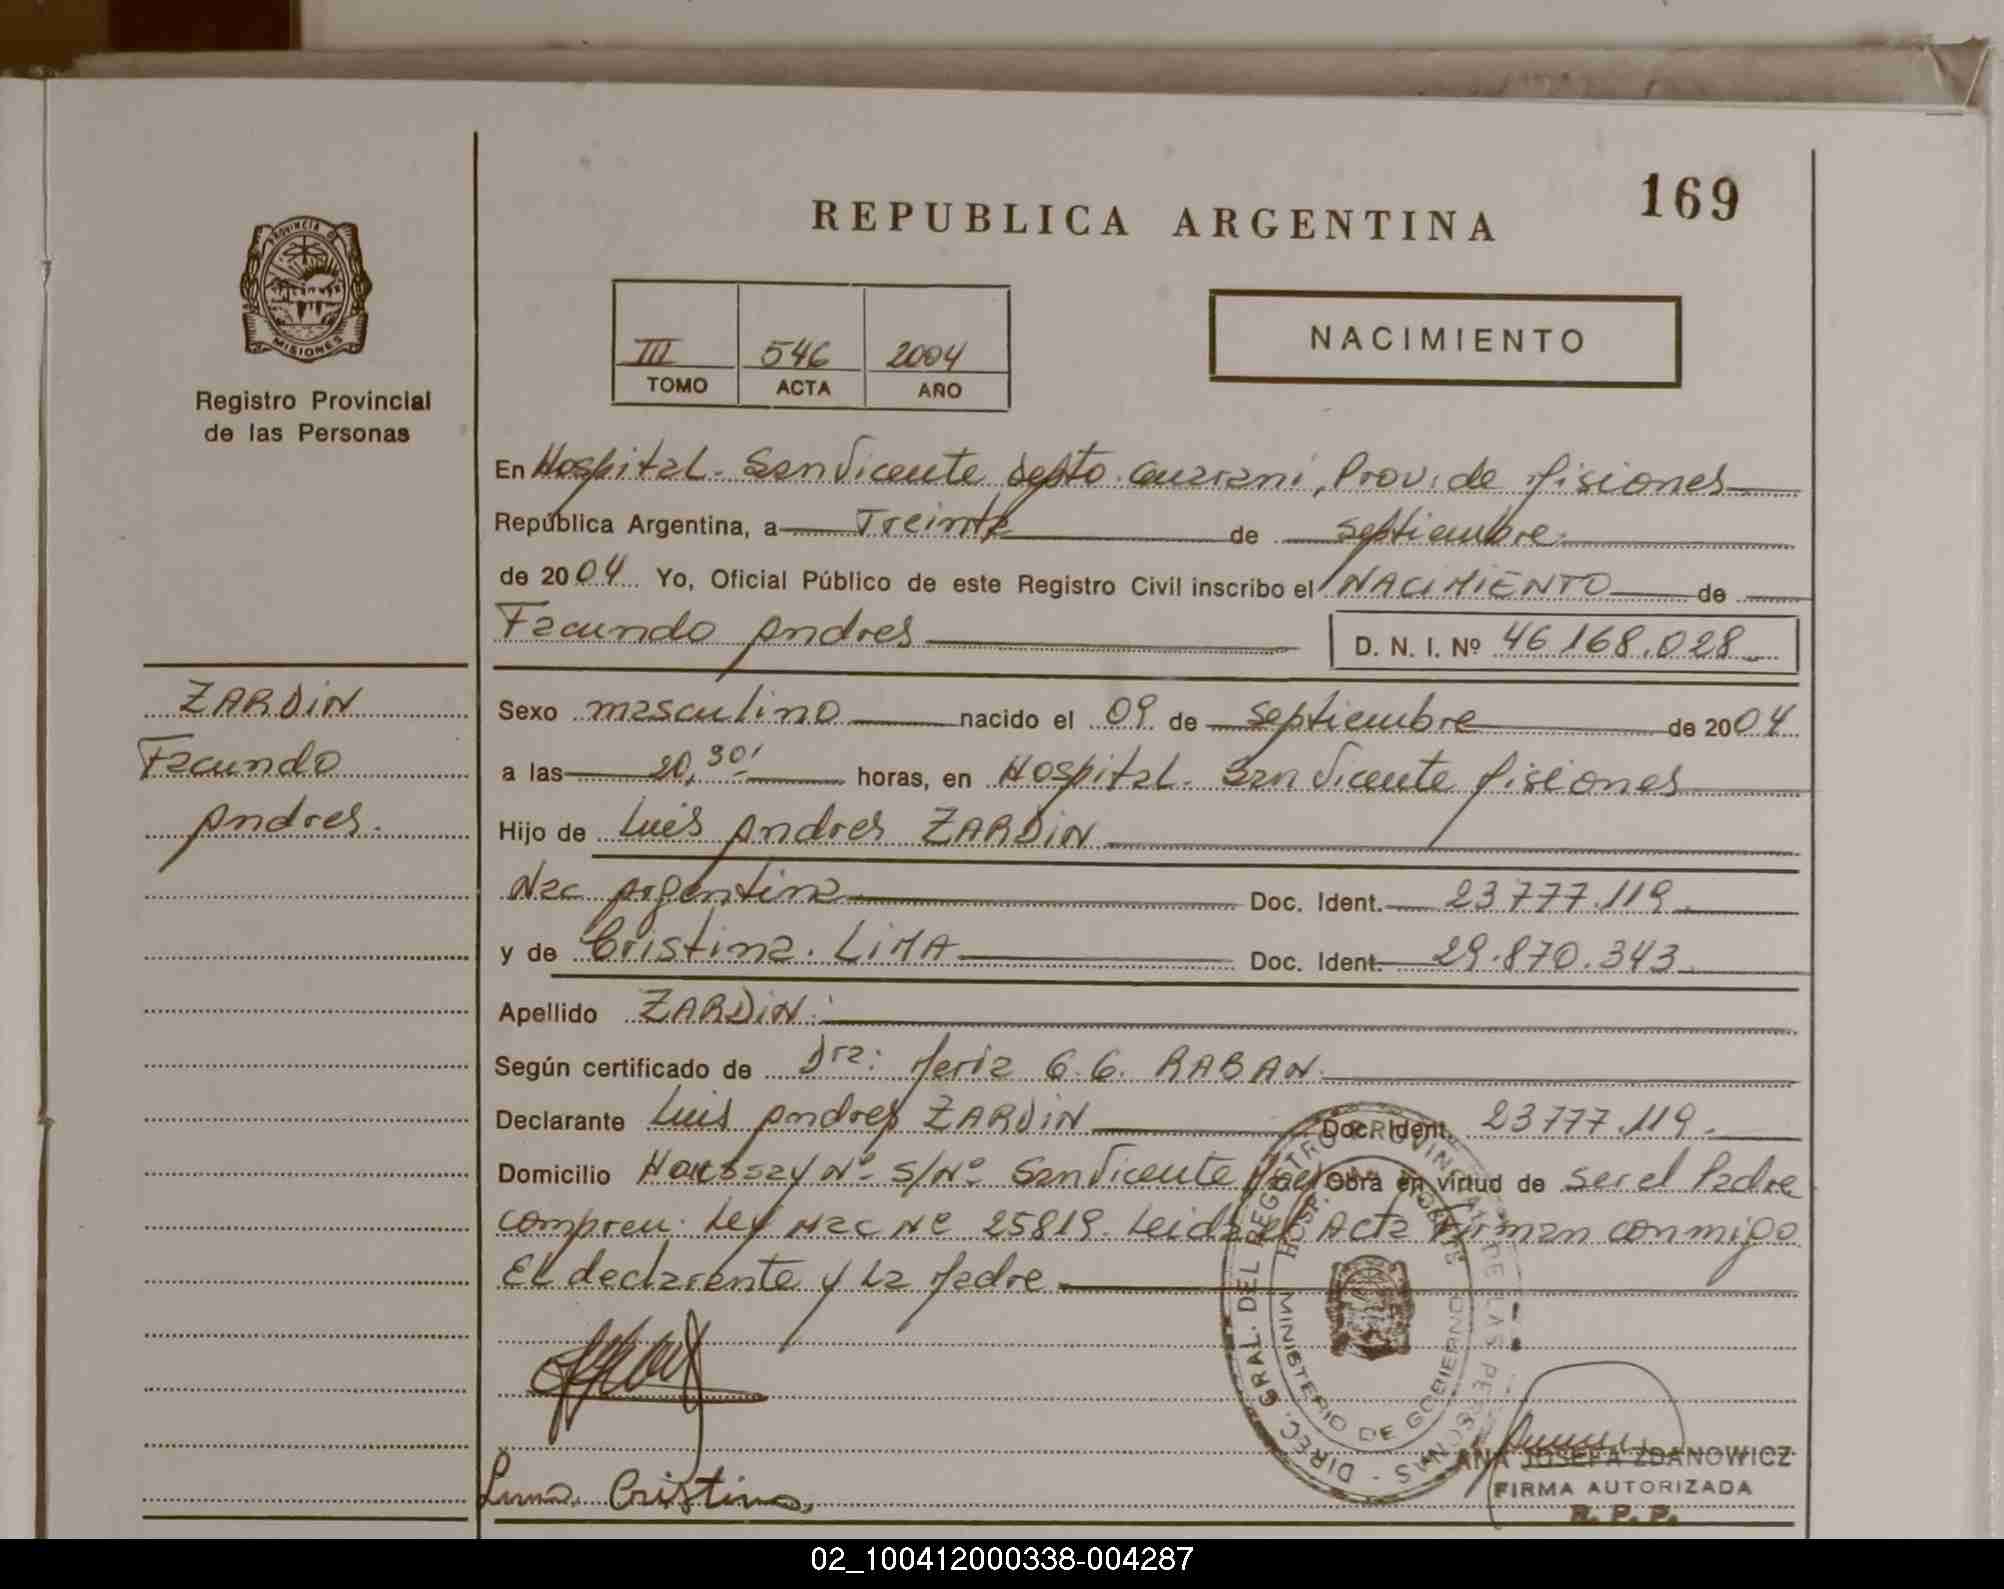 169
REPUBLICA ARGENTINA
PROVINCIA DE
MISIONES
Registro Provincial
de las Personas
III 546 2004
TOMO ACTA AÑO
NACIMIENTO
En Hospital. San Vicente, Depto. Guarani, Prov. de Misiones
República Argentina, a Treinta de septiembre.
de 2004 Yo, Oficial Público de este Registro Civil inscribo el NACIMIENTO de
Facundo Andres D. N. I. Nº 46 168.028
ZARDIN
Facundo
Andres.
Sexo masculino nacido el 09 de septiembre de 2004
a las 20,30' horas, en Hospital. San Vicente Misiones
Hijo de Luis Andres ZARDIN
Nac Argentina Doc. Ident. 23777.119.
y de Cristina. LIMA Doc. Ident. 29.870.343.
Apellido ZARDIN.
Según certificado de Dra: Maria G.G. RABAN.
Declarante Luis Andres ZARDIN Doc. Ident. 23777.119.
Domicilio Houssay Nº S/Nº San Vicente Obra en virtud de ser el Padre
Ley Nac Nº 25819. Leida el Acta Firman conmigo
El declarante y La Madre
DIREC. GRAL. DEL REGISTRO PROVINCIAL DE LAS PERSONAS
MINISTERIO DE GOBIERNO
Lima Cristina.
ANA JOSEFA ZDANOWICZ
FIRMA AUTORIZADA
R. P. P.
02_100412000338-004287